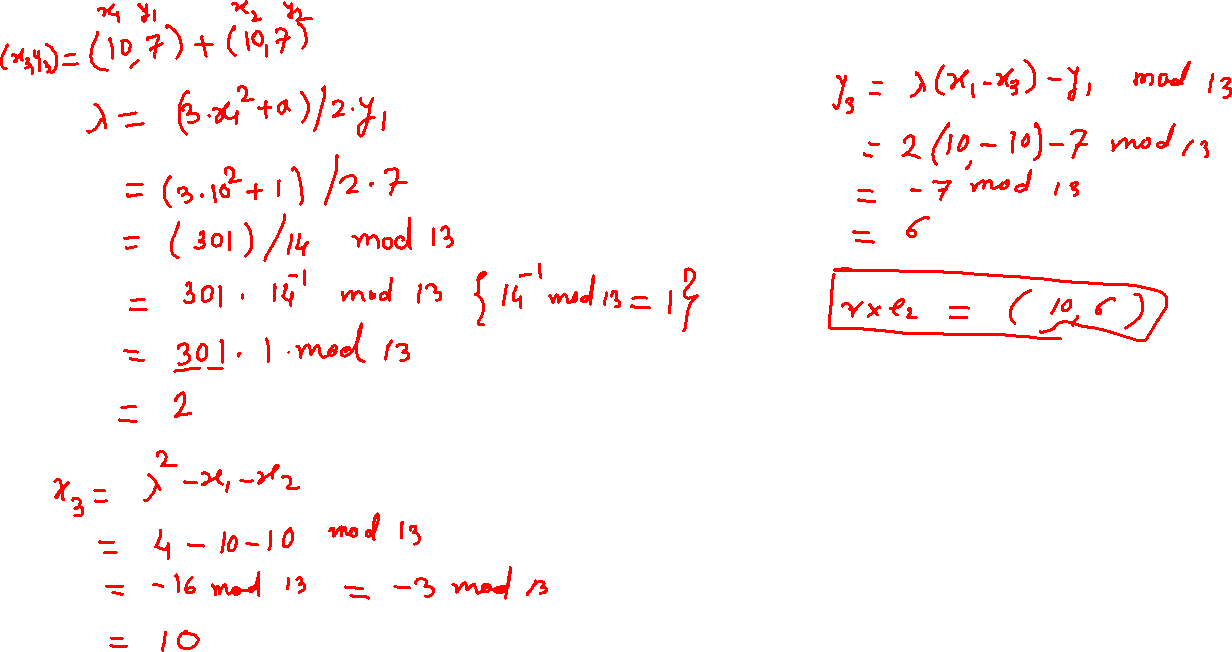 x₁ y₁ x₂ y₂
(x₃,y₃) = (10,7) + (10,7)
λ = (3·x₁² + a) / 2·y₁
= (3·10² + 1) / 2·7
= (301) / 14 mod 13
= 301 · 14⁻¹ mod 13 { 14⁻¹ mod 13 = 1 }
= 301 · 1 · mod 13
= 2
x₃ = λ² - x₁ - x₂
= 4 - 10 - 10 mod 13
= -16 mod 13 = -3 mod 13
= 10
y₃ = λ(x₁ - x₃) - y₁ mod 13
= 2 (10 - 10) - 7 mod 13
= -7 mod 13
= 6
r × e₂ = (10, 6)